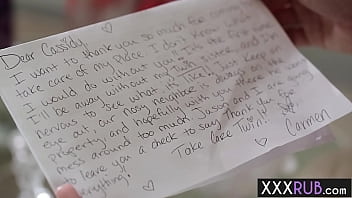 Dear Cassidy
I want to thank you so much for coming
take care of my place. I don't know what
I would do without you. It's the first time
I'll be away without my twin sister, and I'm
nervous to see what it's like. Just keep an
eye out, our nosy neighbor is always
property and hopefully with you there he wont
mess around too much! Jason and I are going
to leave you a check to say Thank you for
everything!
Take Care Twin!
Carmen
XXXRUB.COM